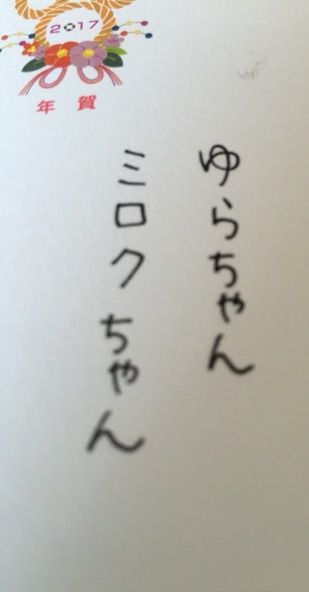 2017
年賀
ゆらちゃん
ミロクちゃん